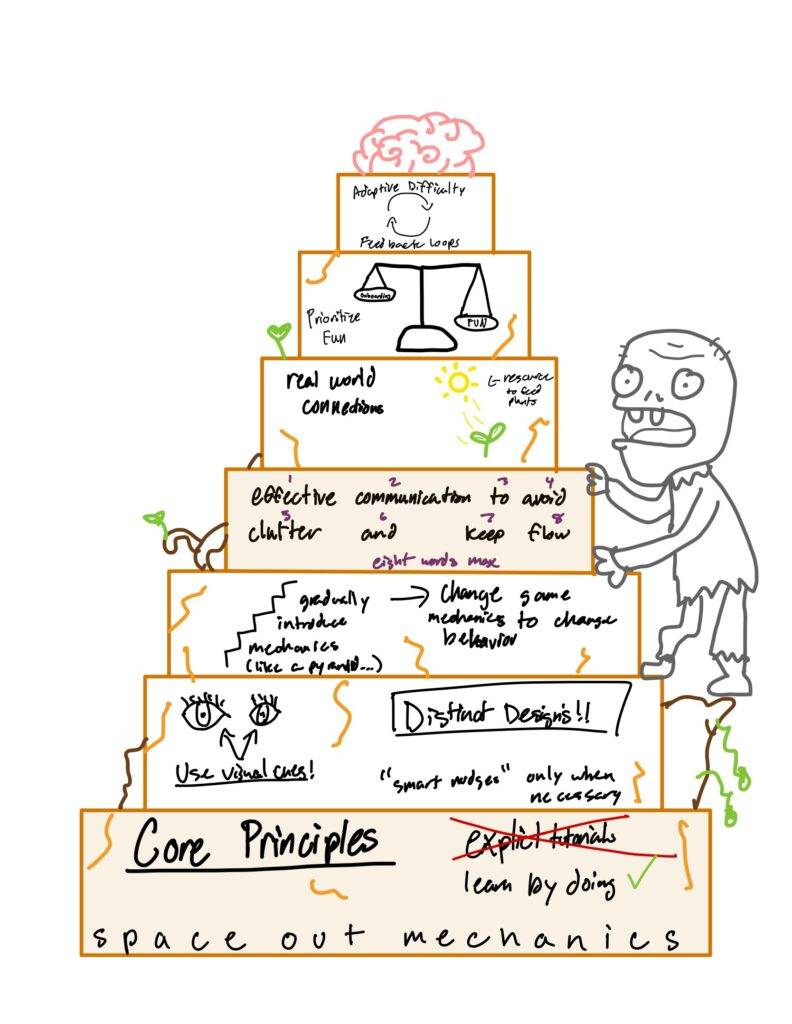 Adaptive Difficulty
Feedback Loops
onboarding
FUN
Prioritize
Fun
real world
connections
← resource
to feed
plants
1 2 3 4
effective communication to avoid
5 6 7 8
clutter and keep flow
eight words max
gradually
introduce
mechanics
(like a pyramid...)
→ Change game
mechanics to change
behavior
Use visual cues!
Distinct Designs!!
"smart nudges" only when
necessary
Core Principles
explicit tutorials
learn by doing ✓
space out mechanics